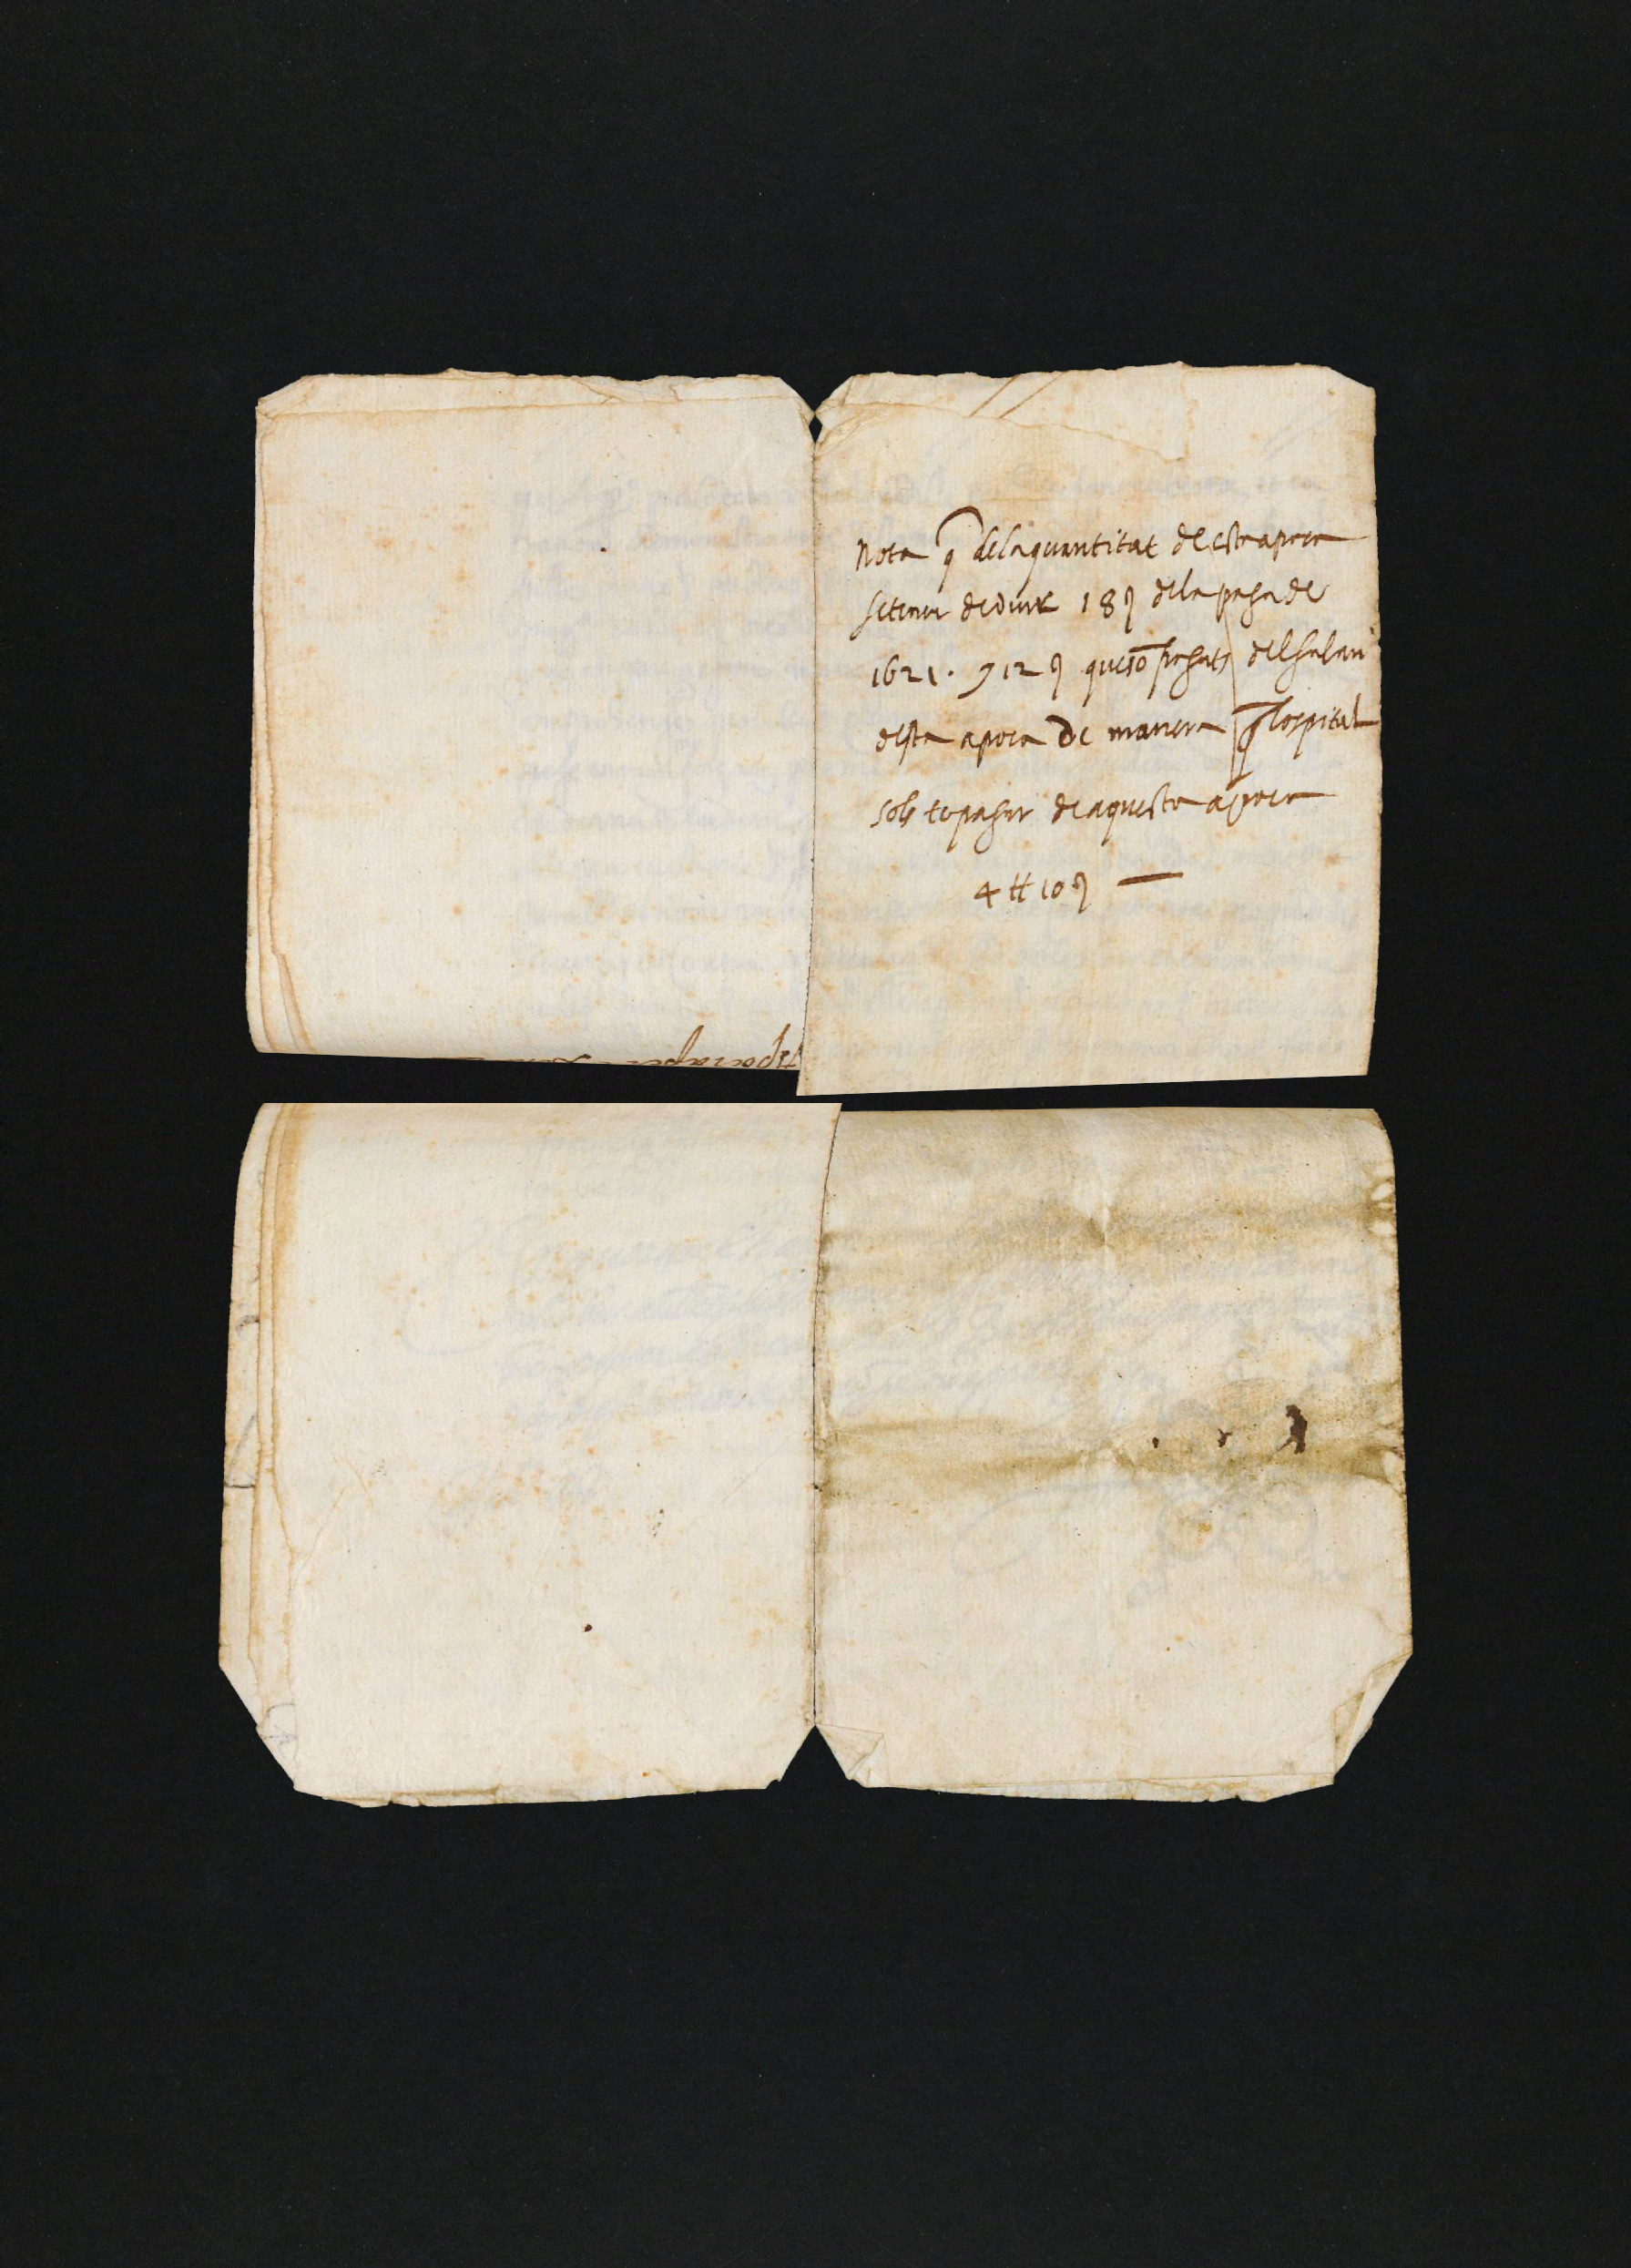 Nota q̄ de la quantitat de esta apoca
se tenen deduir 18 ș de la paga de
1621. y 12 ș que so̅ pagats del salari
desta apoca de manera q̄ lospital
sols te pagar de aquesta apoca
4 ₶ 10 ș —